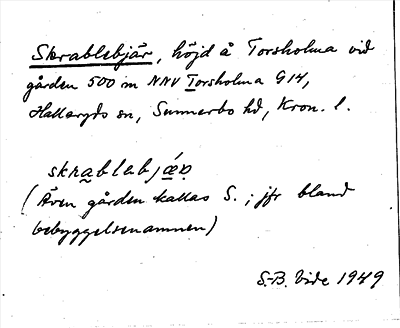 Skrablebjär, höjd å Torsholma vid
gården 500 m NNV Torsholma G 14,
Hallaryds sn, Sunnerbo hd, Kron. l.
skrablabjǽr
(Även gården kallas S.; jfr bland
bebyggelsenamnen)
S.-B. Vide 1949